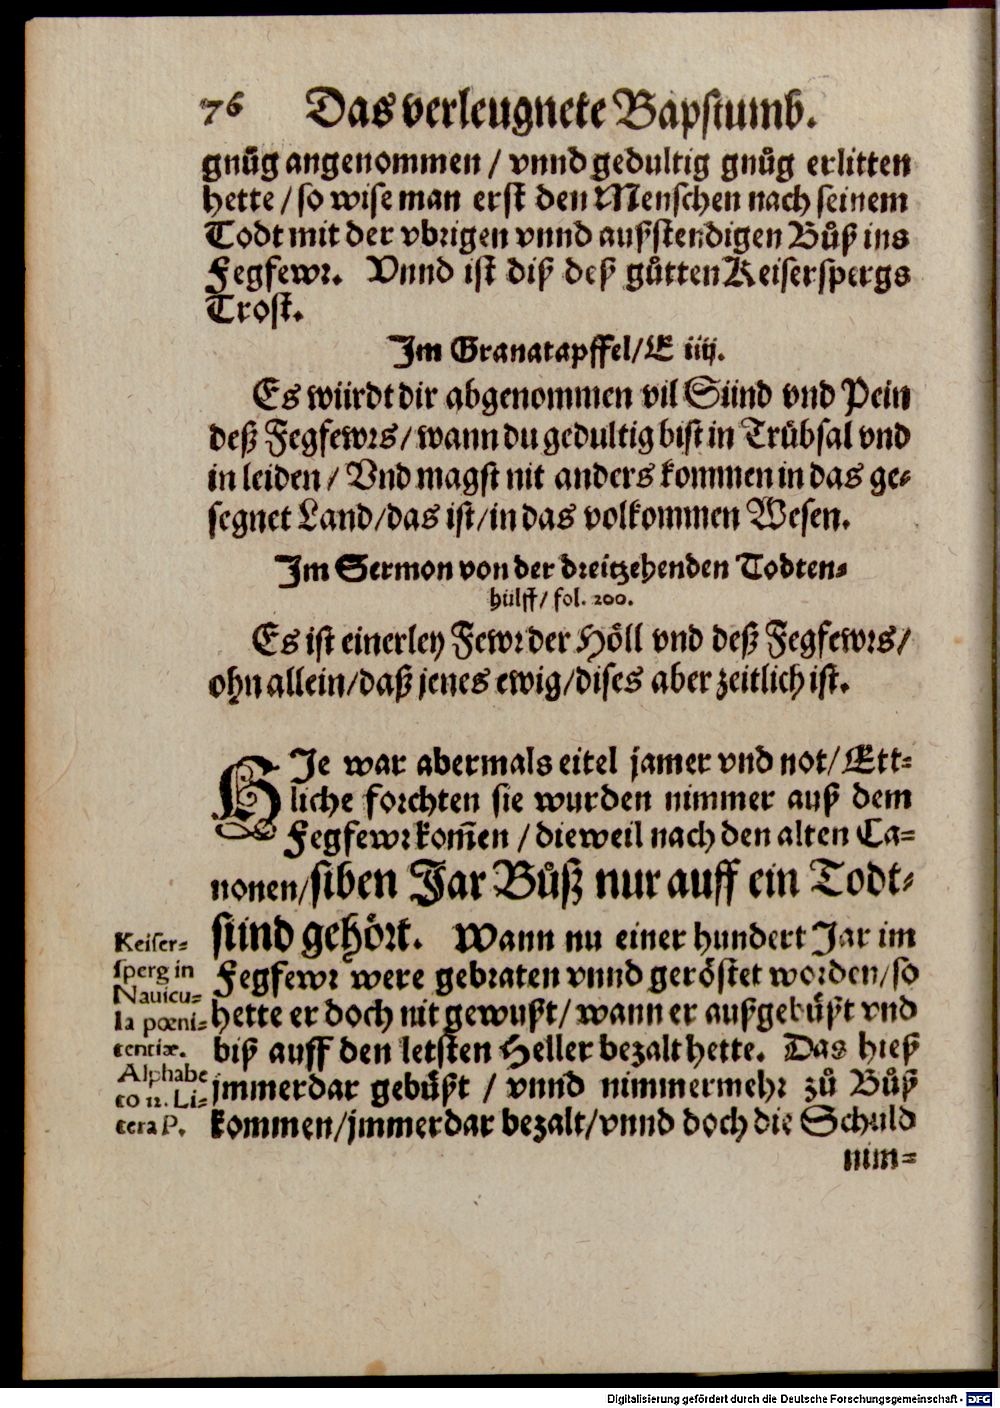 76 Das verleugnete Bapstumb.
gnůg angenommen / vnnd gedultig gnůg erlitten
hette / so wise man erst den Menschen nach seinem
Todt mit der vbrigen vnnd außstendigen Bůß ins
Fegfewr. Vnnd ist diß deß gůtten Keiserspergs
Trost.
Im Granatapffel / E iiij.
Es würdt dir abgenommen vil Sünd vnd Pein
deß Fegfewrs / wann du gedultig bist in Trübsal vnd
in leiden / Vnd magst nit anders kommen in das ge-
segnet Land / das ist / in das volkommen Wesen.
Im Sermon von der dreitzehenden Todten-
hülff / fol. 200.
Es ist einerley Fewr der Höll vnd deß Fegfewrs /
ohn allein / daß jenes ewig / dises aber zeitlich ist.
HIe war abermals eitel jamer vnd not / Ett-
liche forchten sie wurden nimmer auß dem
Fegfewr kom̃en / dieweil nach den alten Ca-
nonen / siben Jar Bůß nur auff ein Todt-
sünd gehört. Wann nu einer hundert Jar im
Fegfewr were gebraten vnnd geröstet worden / so
hette er doch nit gewußt / wann er außgebüßt vnd
biß auff den letsten Heller bezalt hette. Das hieß
jmmerdar gebüßt / vnnd nimmermehr zů Bůß
kommen / jmmerdar bezalt / vnnd doch die Schuld
nim-
Keiser-
sperg in
Nauicu-
la pœni-
tentiæ.
Alphabe
to 11. Li-
tera P.
Digitalisierung gefördert durch die Deutsche Forschungsgemeinschaft - DFG